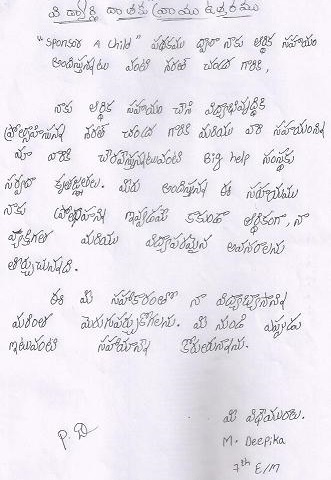 విద్యార్థి దాతకు వ్రాయు ఉత్తరము
"Sponsor A Child" పథకము ద్వారా నాకు ఆర్థిక సహాయం
అందిస్తున్నటు వంటి శరత్ చంద్ర గారికి,
నాకు ఆర్థిక సహాయం చేసి విద్యాభివృద్ధికి
ప్రోత్సాహిస్తున్న శరత్ చంద్ర గారికి మరియు వారి సహాయంని
మా వారికి చేరవేస్తున్నటువంటి Big help సంస్థకు
సర్వదా కృతజ్ఞతలు. మీరు అందిస్తున్న ఈ సహాయము
నాకు ప్రోత్సాహాన్ని ఇవ్వడమే కాకుండా ఆర్థికంగా, నా
వ్యక్తిగత మరియు విద్యాపరమైన అవసరాలను
తీర్చుచున్నది.
ఈ మీ సహకారంతో నా విద్యాభ్యాసాన్ని
మరింత మెరుగుపర్చుకోగలను. మీ నుండి ఎప్పుడు
ఇటువంటి సహాయాన్ని కోరుతున్నాను.
మీ విధేయురాలు.
P. D
M. Deepika
7th E/M